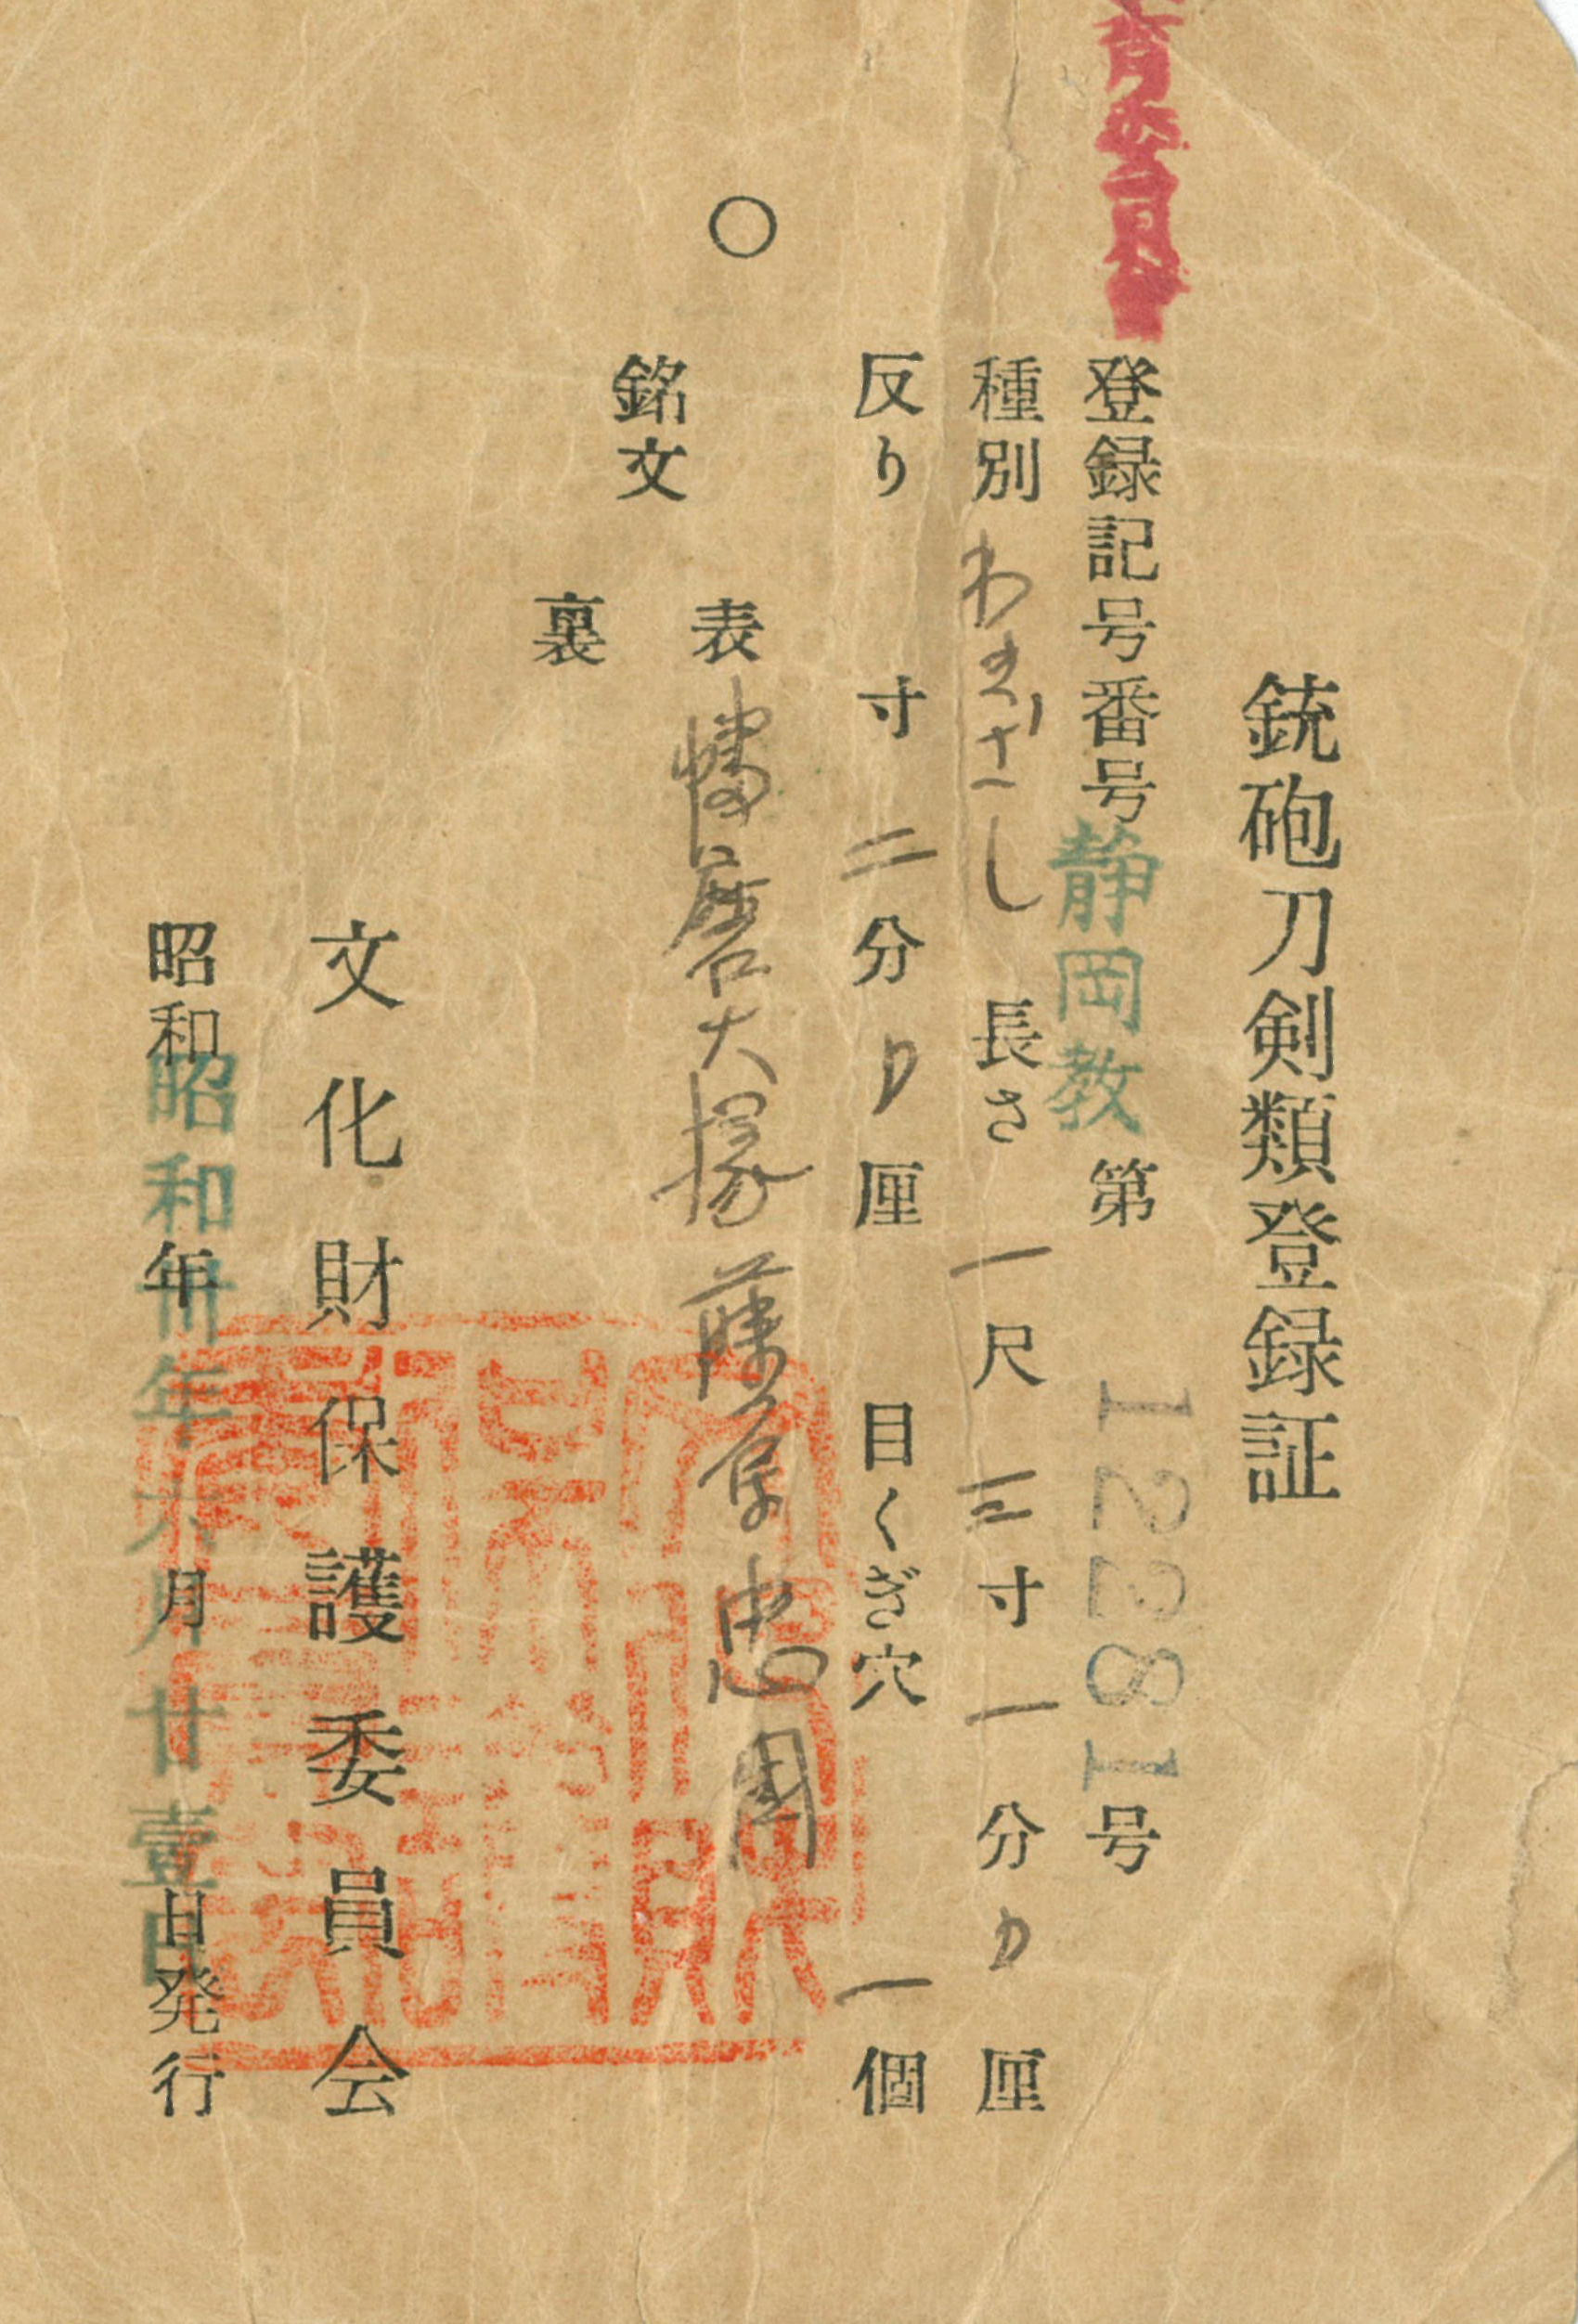 銃砲刀剣類登録証
登録記号番号 静岡教 第 12281 号
種別 わきざし 長さ 一尺三寸一分 厘
反り 寸二分 厘 目くぎ穴 一個
銘文
表 幡磨大掾藤原忠国
裏
文化財保護委員会
昭和 年 月 日発行
昭和卅年六月廿壹日